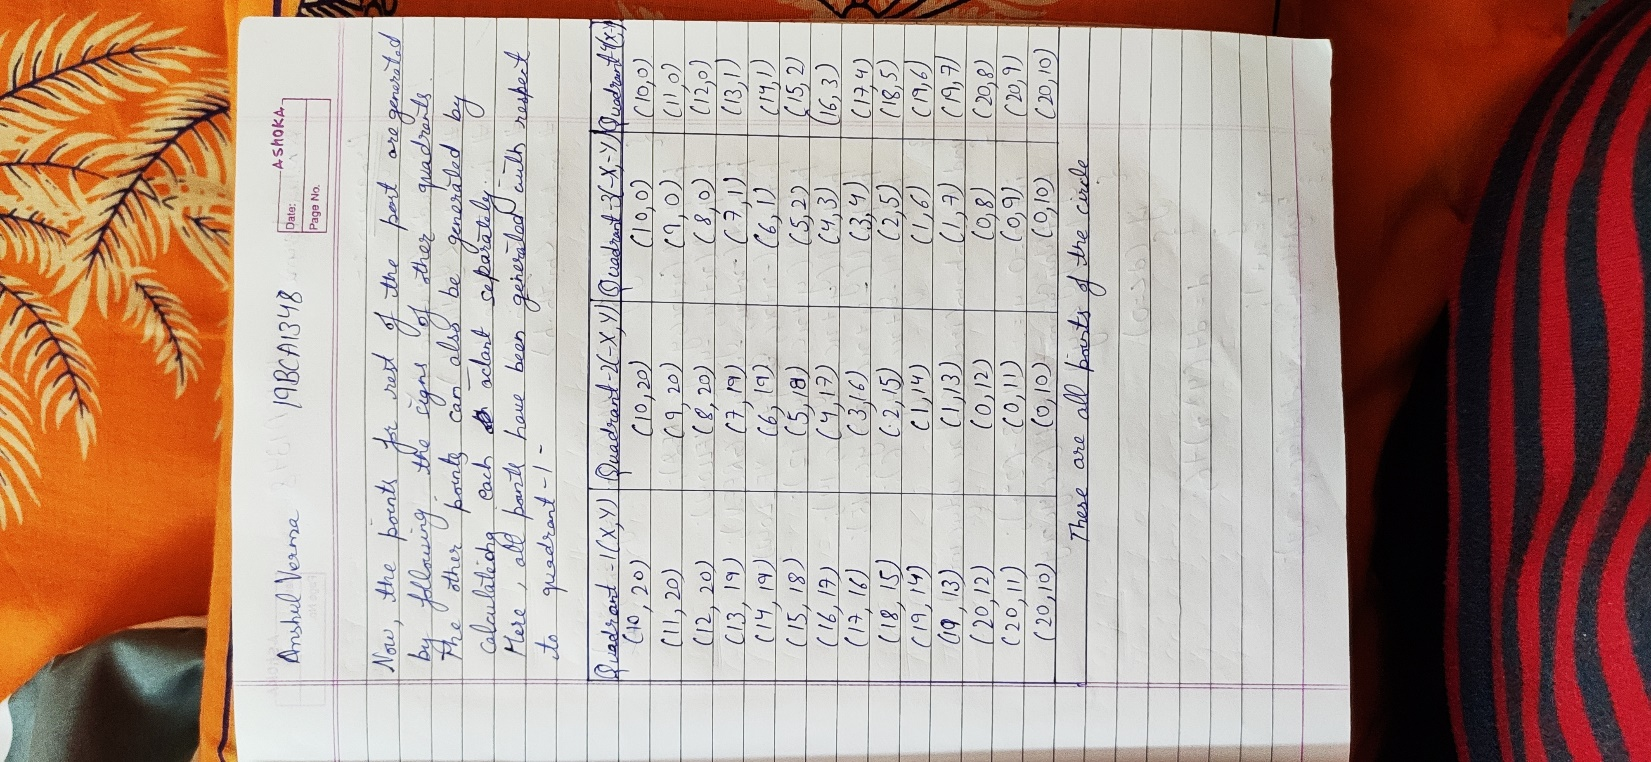 Date: ASHOKA
Page No.
Anshul Verma 19BCA1348
Now, the points for rest of the part are generated
by following the signs of other quadrants.
The other points can also be generated by
calculationg each octant separately.
Here, all points have been generated with respect
to quadrant-1-
Quadrant-1(X,Y) Quadrant-2(-X,Y) Quadrant-3(-X,-Y) Quadrant-4(X,-Y)
(10,20) (10,20) (10,0) (10,0)
(11,20) (9,20) (9,0) (11,0)
(12,20) (8,20) (8,0) (12,0)
(13,19) (7,19) (7,1) (13,1)
(14,19) (6,19) (6,1) (14,1)
(15,18) (5,18) (5,2) (15,2)
(16,17) (4,17) (4,3) (16,3)
(17,16) (3,16) (3,4) (17,4)
(18,15) (2,15) (2,5) (18,5)
(19,14) (1,14) (1,6) (19,6)
(19,13) (1,13) (1,7) (19,7)
(20,12) (0,12) (0,8) (20,8)
(20,11) (0,11) (0,9) (20,9)
(20,10) (0,10) (0,10) (20,10)
These are all points of the circle